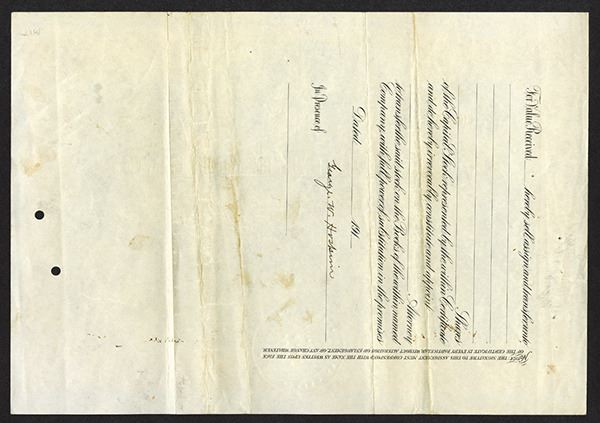 For Value Received hereby sell, assign and transfer unto
Shares
of the Capital Stock represented by the within Certificate
and do hereby irrevocably constitute and appoint
Attorney
to transfer the said stock on the Books of the within named
Company with full power of substitution in the premises
Dated 191
George W.
In Presence of
NOTICE. THE SIGNATURE TO THIS ASSIGNMENT MUST CORRESPOND WITH THE NAME AS WRITTEN UPON THE FACE
OF THE CERTIFICATE IN EVERY PARTICULAR WITHOUT ALTERATION OR ENLARGEMENT, OR ANY CHANGE WHATEVER.